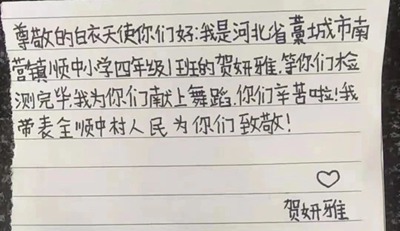 尊敬的白衣天使你们好:我是河北省藁城市南
营镇顺中小学四年级1班的贺妍雅.等你们检
测完毕.我为你们献上舞蹈.你们辛苦啦!我
带表全顺中村人民为你们致敬!
贺妍雅